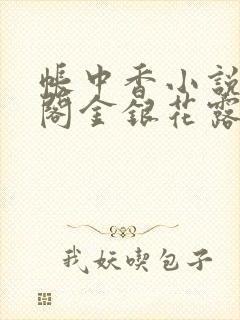 帳中香小說
閣金銀花露
我妖喫包子